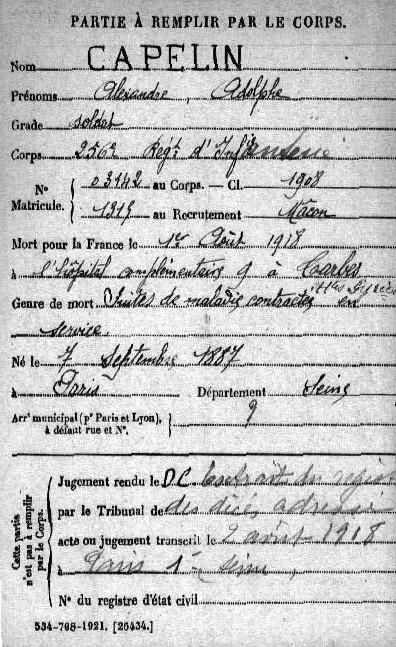 PARTIE À REMPLIR PAR LE CORPS.
Nom CAPELIN
Prénoms Alexandre, Adolphe
Grade soldat
Corps 256e Regt d'Infanterie
N° Matricule. { 03142 au Corps. — Cl. 1908
1315 au Recrutement Mâcon
Mort pour la France le 1er Août 1918
à l'hôpital complémentaire 9 à Tarbes
Htes Pyrénées
Genre de mort Suites de maladie contractée en
service
Né le 7 Septembre 1887
à Paris Département Seine
Arrt municipal (pr Paris et Lyon), à défaut rue et N°. } 9
Cette partie n'est pas à remplir par le Corps.
Jugement rendu le D.C. extrait du
par le Tribunal de des adressé
acte ou jugement transcrit le 2 août 1918
à Paris 1er Seine
N° du registre d'état civil
534-708-1921. [26434.]